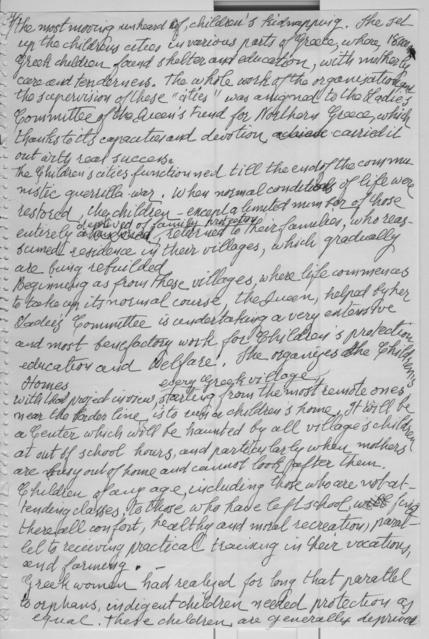 of the most moving unheard of, children's kidnapping. She set
up the childrens cities in various parts of Greece, where 18000
Greek children found shelter and education, with motherly
care and tenderness. The whole work of the organisation and
the supervision of these "cities" was assigned to the Ladies
Committee of the Queen's Fund for Northern Greece, which
thanks to its capacities and devotion, carried it
out with real success.
The Children's cities functionned till the end of the commu-
nistic guerrilla war. When normal conditions of life were
restored, the children - except a limited number of those
deprived of families protection
enterely, returned to their families, who reas-
sumed residence in their villages, which gradually
are being rebuilded.
Beginning as from these villages, where life commences
to take up its normal course, the Queen, helped by her
Ladies' Committee is undertaking a very extensive
and most benefactory work for Children's protection
education and Welfare. She organizes the Children's
Homes every Greek village
with that project in view, starting from the most remote ones
near the border line, is to own a children's home. It will be
a Center which will be haunted by all village's children
at out of school hours, and particularly when mothers
are busy out of home and cannot look after them.
Children of any age, including those who are not at-
tending classes, to those who have left school, will find
there all confort, healthy and moral recreation, paral-
lel to receiving practical training in their vocation,
and farming. -
Greek women had realized for long that parallel
to orphans, indigent children needed protection as
equal. These children are generally deprived